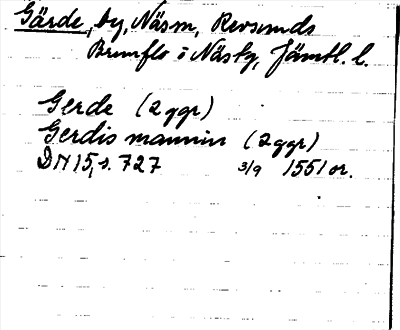 Gärde, by, Näsm, Revsunds
Brunflo o Näskg, Jämtl. l.
Gerde (2 ggr)
Gerdis mannin (2 ggr)
DN 15, s. 727 3/9 1551 or.